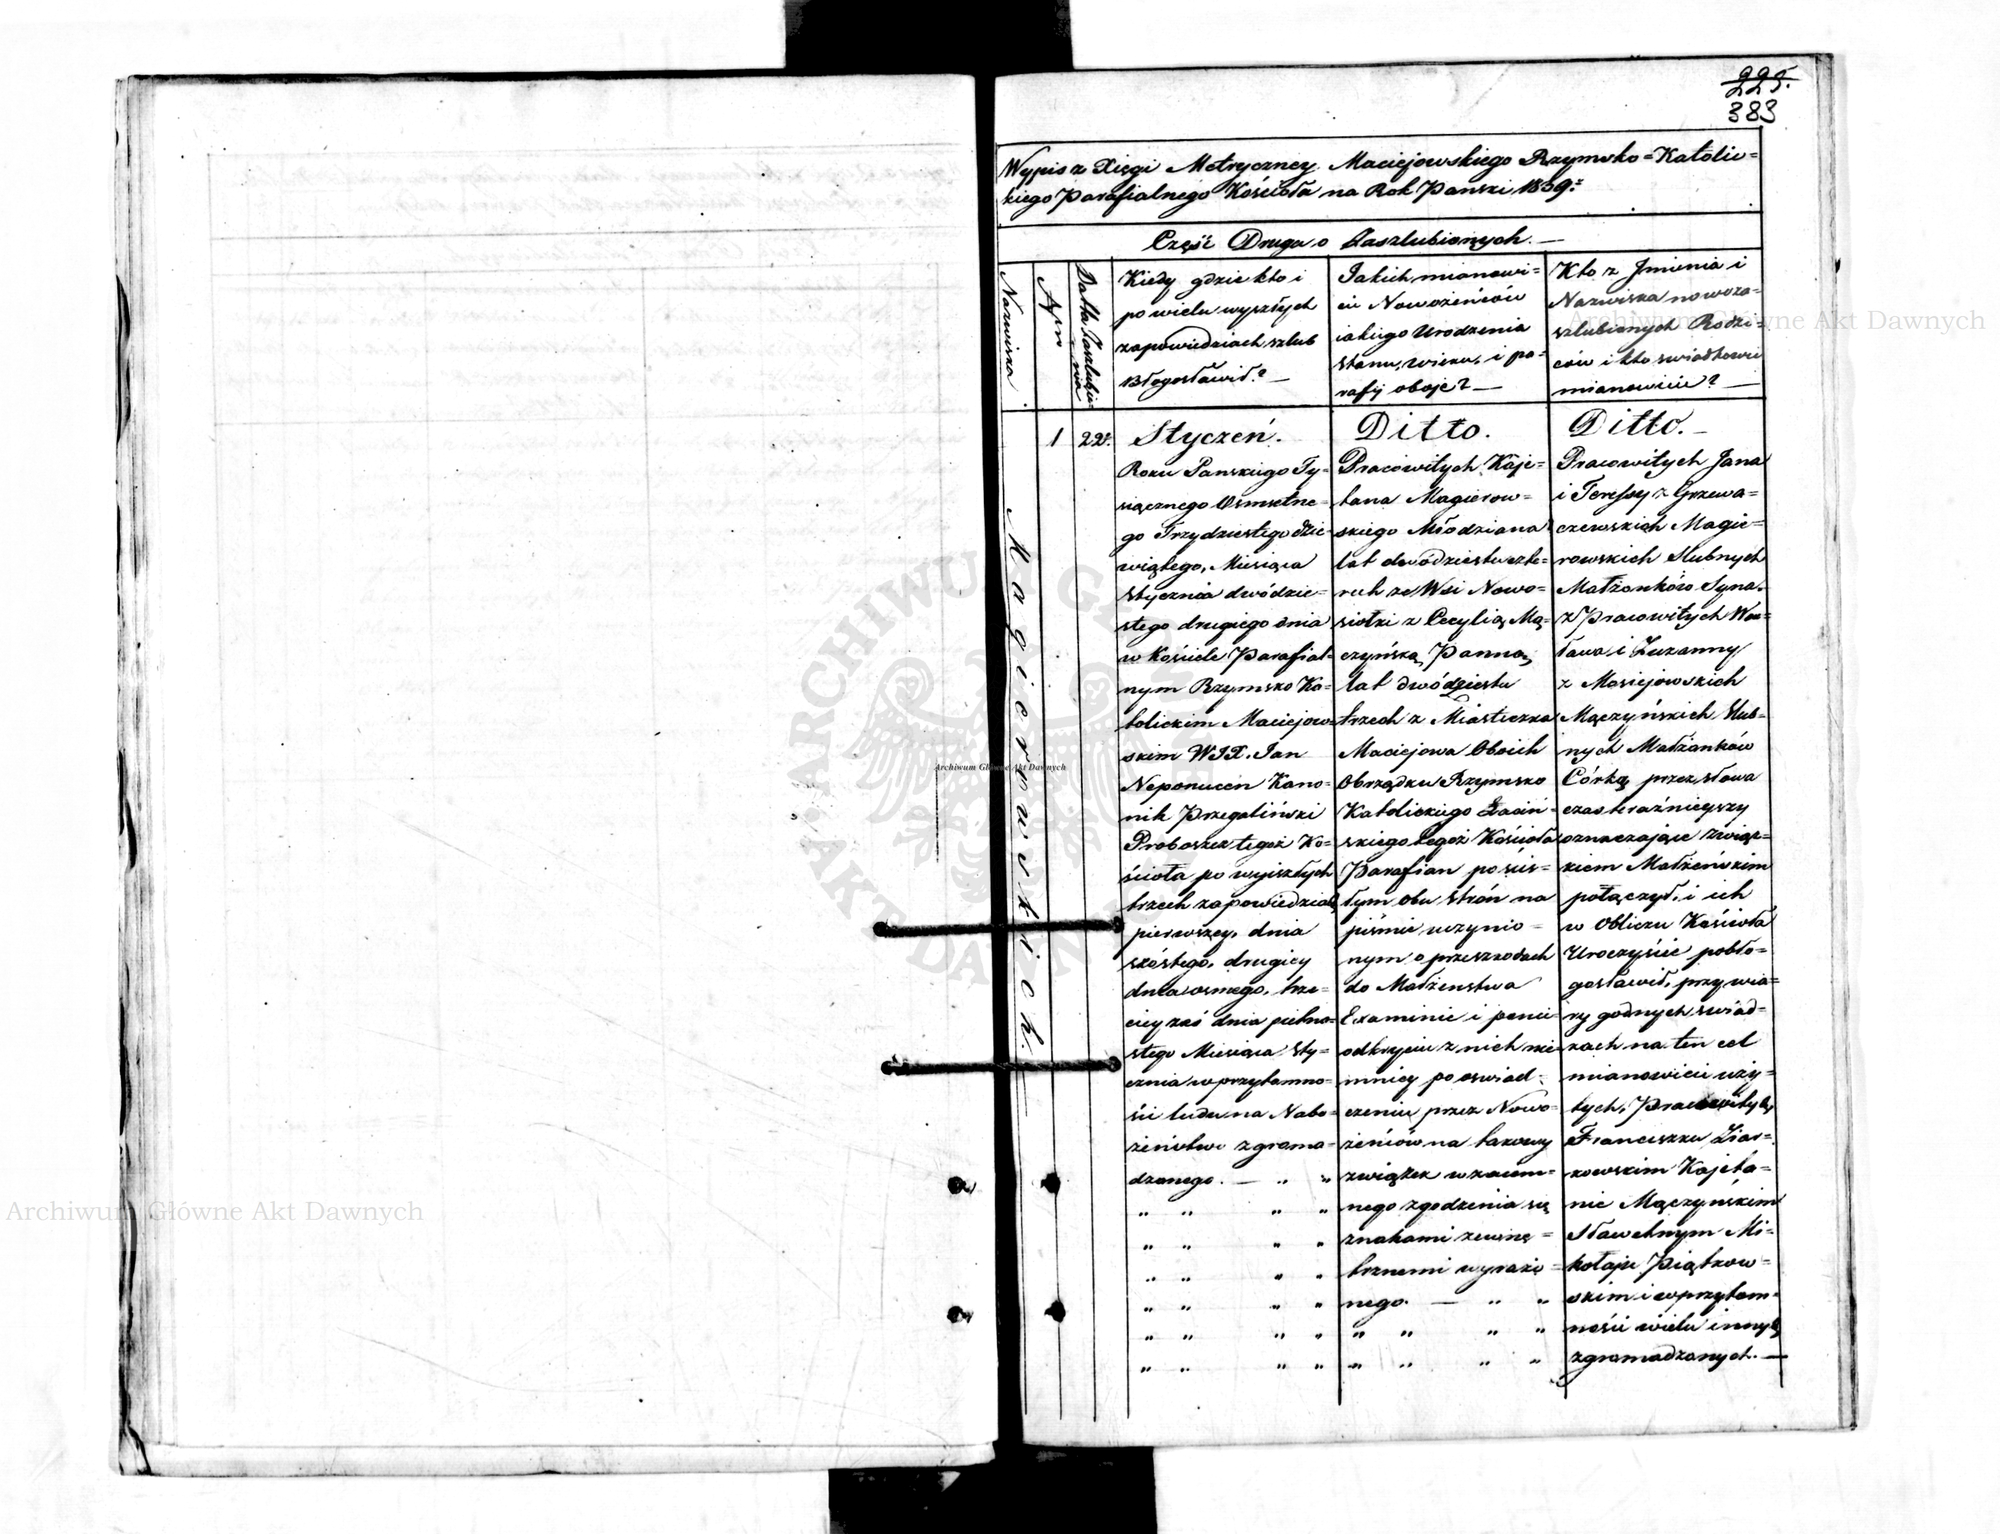 225.
383
Wypis z Xięgi Metryczney Maciejowskiego Rzymsko=Katolic=
kiego Parafialnego Kościoła na Rok Panski 1839:
Część Druga o Zaszlubionych.—
Nazwiska
Datta Zaszlubie=
nia
Kiedy gdzie kto i
po wielu wyszłych
zapowiedziach szlub
Błogosławił?—
Jakich mianowi=
cie Nowożeńców
iakiego Urodzenia
stanu, wieku, i pa=
rafij oboje?—
Kto z Jmienia i
Nazwiska nowoza=
szlubionych Rodzi=
ców i kto swiadkowie
mianowicie?—
Magierowskich.
1
22.
Styczeń.
Roku Panskiego Ty=
siącznego Osmsetne=
go Trzydziestego dzie=
wiątego, Miesiąca
stycznia dwódzie=
stego drugiego dnia
w Kościele Parafial=
nym Rzymsko Ka=
tolickim Maciejow=
skim WJX. Jan
Neponucen Kano=
nik Przegaliński
Proboszcz tegoż Ko=
ścioła po wyiszłych
trzech zapowiedziach
pierwszey, dnia
szóstego, drugiey
dnia osmego, trze=
ciey zaś dnia pietna=
stego Miesiąca Sty=
cznia w przytomno=
ści ludu na Nabo=
żeństwo zgroma=
dzonego.— " "
" " " "
" " " "
" " " "
" " " "
" " " "
" " " "
Ditto.
Pracowitych Kaje=
tana Magierow=
skiego Młodziana
lat dwódziestu czte=
rech ze Wsi Nowo=
siołki z Cecylią Mą=
czyńską Panną
lat dwódziestu
trzech z Miasteczka
Maciejowa Oboich
Obrządku Rzymsko
Katolickiego Łaciń=
skiego tegoż Kościoła
Parafian po ścis=
łym obu strón na
piśmie uczynio=
nym o przeszkodach
do Małżenstwa
Examinie i
odkryciu z nich
mnicy po oswiad=
czeniu przez Nowo=
żeńców na takowy
związek wzaiem=
nego zgodzenia się
znakami zewnę=
trznemi wyrażo=
nego.— " "
" " " "
" " " "
Ditto.—
Pracowitych Jana
i Teressy z Grzewa=
czewskich Magie=
rowskich Slubnych
Małżonków Syna.
z Pracowitych Wac=
ława i Zuzanny
z Maciejowskich
Mączyńskich Slub=
nych Małżonków
Córką przez słowa
czas teraźnieyszy
oznaczające związ=
kiem Małżeńskim
połączył, i ich
w Obliczu Kościoła
Uroczyście pobło=
gosławił, przy wia=
ry godnych swiad=
kach na ten cel
mianowicie uży=
tych, Pracowitych
Franciszku Ziar=
kowskim Kajeta=
nie Mączyńskim
Sławetnym Mi=
kołaju Piątkow=
skim i w przytom=
ności wielu innych
zgromadzonych.—
Archiwum Główne Akt Dawnych
Archiwum Główne Akt Dawnych
Archiwum Główne Akt Dawnych
ARCHIWUM GŁÓWNE AKT DAWNYCH